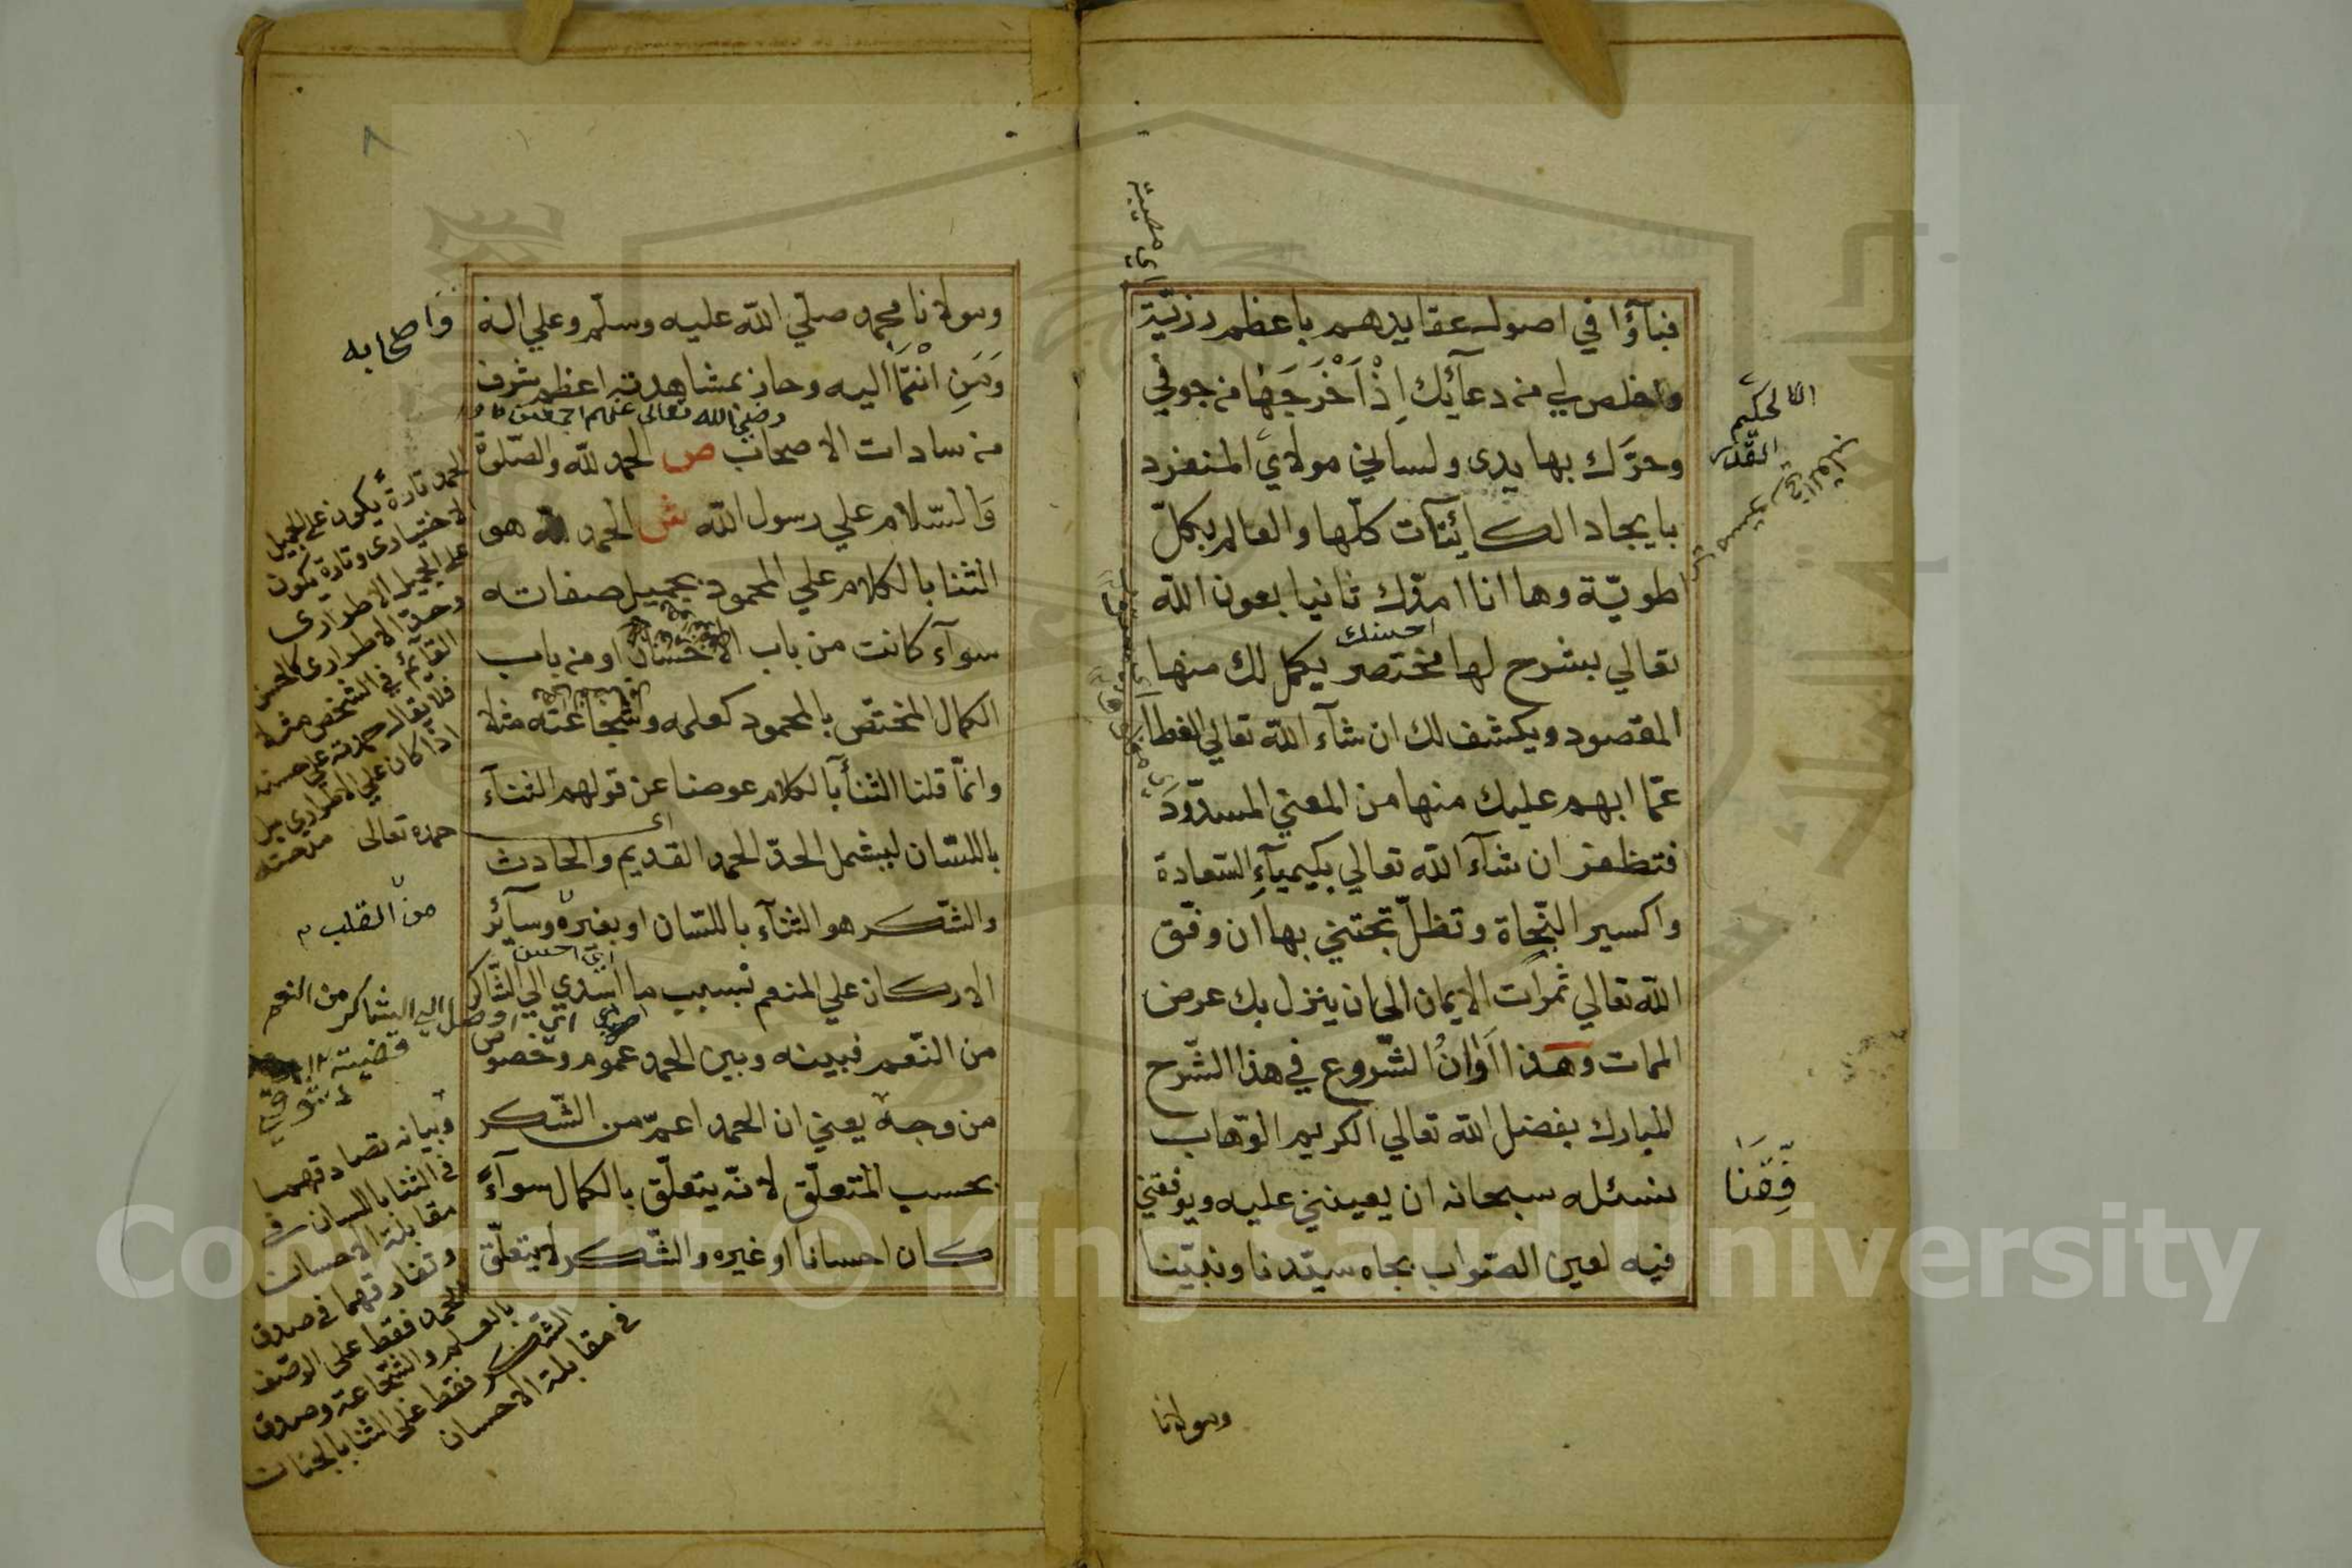 فبآؤا في اصول عقايدهم باعظم رزيّة
واخلص لي من دعآئك اِذْ اَخْرَجَهَا من جوفي
وحرّك بها يدى ولساني مولاي المنفرد
بايجاد الكائينآت كلّها والعالم بكلّ
اطويّة وها انا امدّك ثانيا بعون اللّه
تعالي بشرح لها مختصر يكمل لك منها
المقصود ويكشف لك ان شآء اللّه تعالي الغطا
عمّا ابهم عليك منها من المعني المسدّود
فتظفر ان شآء اللّه تعالي بكيميآءِ السّعادة
واكسير النّجاة وتظلّ تجتني بها ان وفّق
اللّه تعالي ثمرات الايمان الي ان ينزل بك عرض
الممات وهذا اَوَانُ الشّروع في هذا الشّرح
المبارك بفضل اللّه تعالي الكريم الوهّاب
نسئله سبحانه ان يعينني عليه ويوفقني
فيه لعين الصّواب بجاه سيّدنا ونبيّنا
اي مصيبة
وفّقنا
ومولانا
٨
ومولانا محمد صلّي اللّه عليه وسلّم وعلي اله
واصحابه
وَمَنِ انْتَمَا اليه وحاز بمشاهدته اعظم شرف
رضي الله تعالى عنهم اجمعين
من سادات الاصحاب ص الحمد للّه والصّلوة
وَالسّلام علي رسول اللّه ش الحمد لله هو
الثنا بالكلام علي المحمود بجميل صفاته
سوآء كانت من باب الاحسان او من باب
الكمال المختصّ بالمحمود كعلمه وشجاعته مثلا
وانّما قلنا الثنأ بالكلام عوضا عن قولهم الثنآء
باللسّان ليشمل الحدّ الحمد القديم والحادث
والشّكر هو الثنآء باللسّان او بغيره وسآئر
الاركان علي المنعم بسبب ما اسدي الي الشّاكر
اي احسن
من النّعم فبينه وبين الحمد عموم وخصوص
من وجه يعني ان الحمد اعمّ من الشّكر
بحسب المتعلّق لانّه يتعلّق بالكمال سوآءً
كان احسانا او غيره والشّكر لا يتعلّق
الحمد تارة يكون على الجميل
الاختيارى وتارة يكون
على الجميل الاطرارى
وهذا الاطرارى كالحسن
القآئم في الشخص مثلا
فلا يقال حمدته على حسنه
اذا كان على الاطرارى بل
مدحته
حمده تعالى
من القلب
اي اوصل الي الشاكر من النعم
وبيانه تصادقهما
في الثنا باللسان في
مقابلة الاحسان
وتفارقهما في صدق
الحمد فقط على الوصف
بالعلم والشّجاعة وصدق
الشّكر فقط على الثنا بالجنان
في مقابلة الاحسان